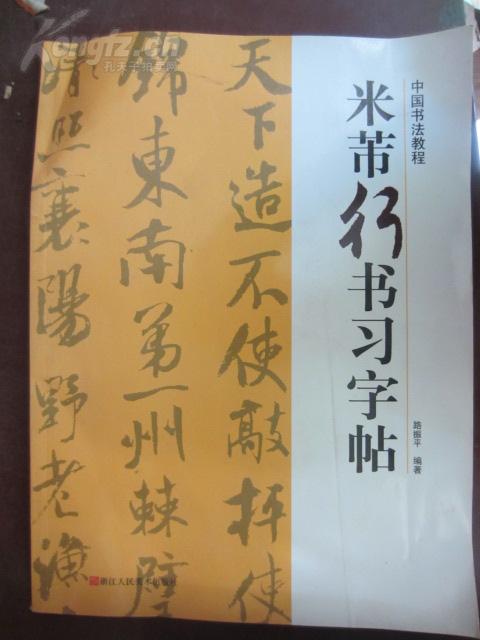 Kongfz.cn
孔夫子拍卖网
中国书法教程
米芾行书习字帖
路振平 编著
天下造不使敲抨使
錦東南第一州棘璧
清照襄陽野老漁
浙江人民美术出版社